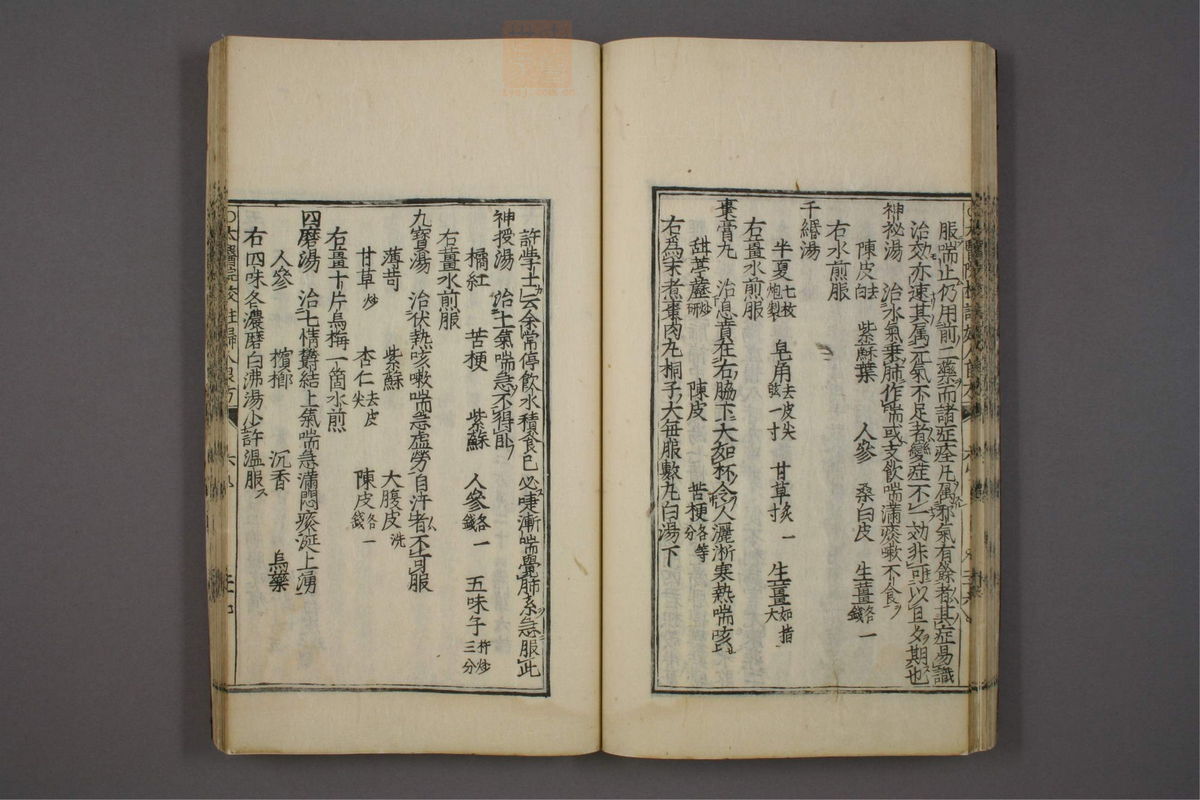 服喘止仍用前二藥而諸症痊凡属邪氣有餘者其症易識
治效亦速其属元氣不足者變症不一効非可以且夕期也
神祕湯　治水氣乗肺作喘或支飲喘滿痰嗽不食
陳皮去白　紫蘇葉　人參　桑白皮　生薑各一錢
右水煎服
千緡湯
半夏七枚炮製　皂角去皮尖弦一寸　甘草炙一　生薑如指大
右薑水煎服
棗膏丸　治息賁在右脇下大如杯令人灑淅寒熱喘咳
甜葶藶炒研　陳皮　苦梗各等分
右爲末煮棗肉丸桐子大每服數丸白湯下
許學士云余常停飲水積食已必嚏漸喘覺肺系急服此
神授湯　治上氣喘急不得臥
橘紅　苦梗　紫蘇　人參各一錢　五味子杵炒三分
右薑水煎服
九寶湯　治伏熱咳嗽喘急虚勞自汗者不可服
薄苛　紫蘇　大腹皮洗
甘草炒　杏仁去皮尖　陳皮各一錢
右薑十片烏梅一箇水煎
四磨湯　治七情鬱結上氣喘急滿悶痰涎上湧
人參　檳榔　沉香　烏藥
右四味各濃磨白沸湯少許溫服